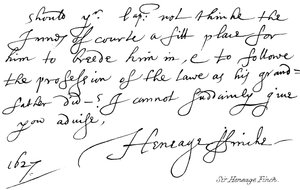 should yr. Lp: not thinke the
Innes of courte a fitt place for
him to breede him in, & to followe
the profession of the Lawe as his grand=
father did - I cannot sudainly give
you advise,
Heneage ffinche
1627
Sir Heneage Finch.